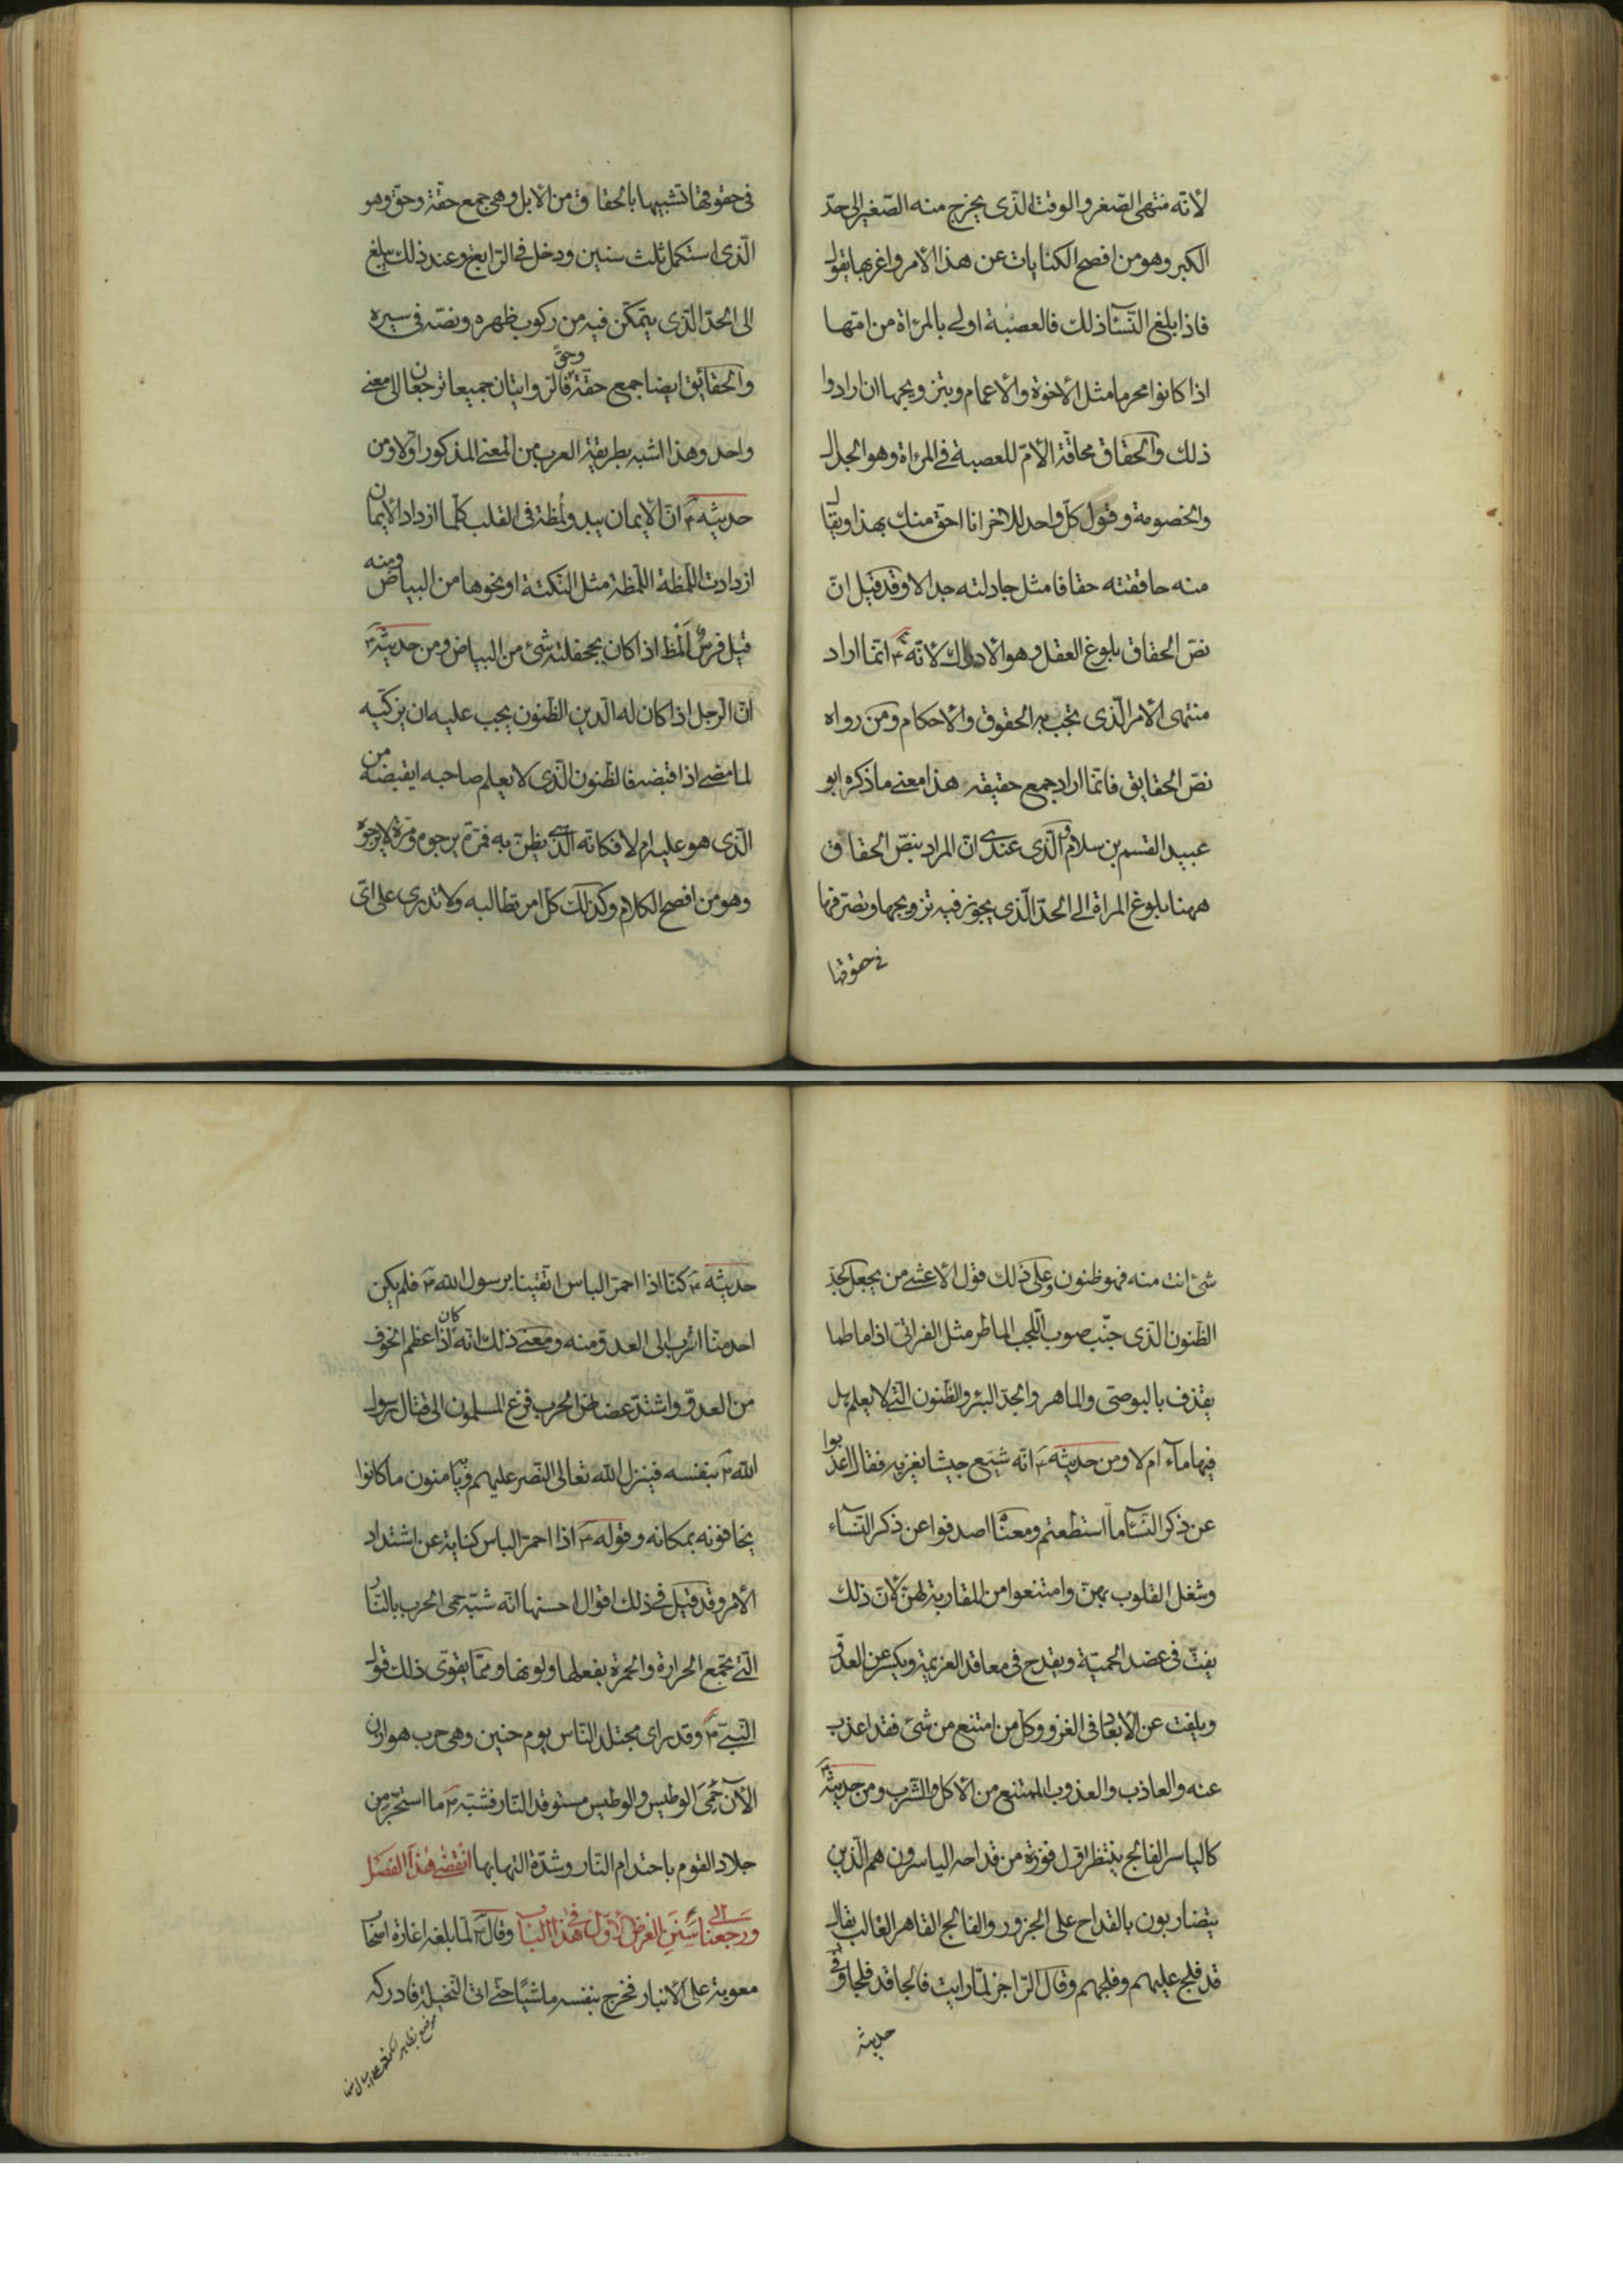 لأنّه منتهى الصّغر والوقت الّذى يخرج منه الصّغير الى حدّ
الكبر وهو من افصح الكنايات عن هذا الامر واغربها يقول
فاذا بلغ النّسآء ذلك فالعصبة اولى بالمرأة من امّها
اذا كانوا محرما مثل الأخوة والأعمام وبتزويجها ان ارادوا
ذلك والحقاق محاقّة الأمّ للعصبة فى المرأة وهو الجدال
والخصومة وقول كلّ واحد للاخر انا احقّ منك بهذا ويقال
منه حاققته حقاقا مثل جادلته جدالا وقد قيل انّ
نصّ الحقاق بلوغ العقل وهو الأدراك لأنّه ع انّما اراد
منتهى الأمر الّذى تجب به الحقوق والأحكام ومن رواه
نصّ الحقايق فانّما اراد جمع حقيقة هذا معنى ما ذكره ابو
عبيد القسم بن سلام والّذى عندى انّ المراد بنصّ الحقاق
ههنا بلوغ المرأة الى الحدّ الّذى يجوز فيه تزويجها وتصرّفها
فى حقوقها
فى حقوقها تشبيها بالحقاق من الأبل وهى جمع حقّة وحقّ وهو
الّذى استكمل ثلث سنين ودخل فى الرّابعة وعند ذلك يبلغ
الى الحدّ الّذى يتمكّن فيه من ركوب ظهره ونصّه فى سيره
والحقائق ايضا جمع حقّة وحقّ فالرّوايتان جميعا ترجعان الى معنى
واحد وهذا اشبه بطريقة العرب من المعنى المذكور اوّلا ومن
حديثه ع انّ الأيمان يبدو لُمظة فى القلب كلّما ازداد الأيمان
ازدادت اللّمظة اللّمظة مثل النّكتة او نحوها من البياض ومنه
قيل فرس ألمظ اذا كان بجحفلته شئ من البياض ومن حديثه ع
انّ الرّجل اذا كان له الدّين الظّنون يجب عليه ان يزكّيه
لما مضى اذا قبضه فالظّنون الّذى لا يعلم صاحبه ايقبضه من
الّذى هو عليه ام لا فكانّه الّذى يظنّ به فمرّة يرجوه ومرّة لا يرجوه
وهو من افصح الكلام وكذلك كلّ امر تطالبه ولا تدرى على اىّ
شئ انت منه فهو ظنون وعلى ذلك قول الأعشى من يجعل الجدّ
الظّنون الّذى جنّب صوب اللّجب الماطر مثل الفراتىّ اذا ما طما
يقذف بالبوصىّ والماهر والجدّ البئر والظّنون الّتى لا يعلم هل
فيها مآء ام لا ومن حديثه ع انّه شيّع جيشا يغزيه فقال اعذبوا
عن ذكر النّسآء ما استطعتم ومعناه اصدفوا عن ذكر النّسآء
وشغل القلوب بهنّ وامتنعوا من المقاربة لهنّ لأنّ ذلك
يفتّ فى عضد الحميّة ويقدح فى معاقد العزيمة ويكسر عن العدوّ
ويلفت عن الأبعاد فى الغزو وكلّ من امتنع من شئ فقد اعذب
عنه والعاذب والعذوب الممتنع من الأكل والشّرب ومن حديثه ع
كالياسر الفالج ينتظر اوّل فوزة من قداحه الياسرون هم الّذين
يتضاربون بالقداح على الجزور والفالج القاهر الغالب يقال
قد فلج عليهم وفلجهم وقال الرّاجز لمّا رايت فالجا قد فلجا وفى
حديثه
حديثه ع كنّا اذا احمرّ الباس اتّقينا برسول الله ص فلم يكن
احد منّا اقرب الى العدوّ منه ومعنى ذلك انّه كان اذا عظم الخوف
من العدوّ واشتدّ عضاض الحرب فزع المسلمون الى قتال رسول
الله ص بنفسه فينزل الله تعالى النّصر عليهم به ويامنون ما كانوا
يخافونه بمكانه وقوله ع اذا احمرّ الباس كناية عن اشتداد
الأمر وقد قيل فى ذلك اقوال احسنها انّه شبّه حمى الحرب بالنّار
الّتى تجمع الحرارة والحمرة بفعلها ولونها وممّا يقوّى ذلك قول
النّبىّ ص وقد راى مجتلد النّاس يوم حنين وهى حرب هوازن
الآن حَمِىَ الوطيس والوطيس مستوقد النّار فشبّه ص ما استحرّ من
جلاد القوم باحتدام النّار وشدّة التهابها انقضى هذا الفصل
ورجعنا الى سَنَن الغرض الأوّل فى هذا الباب وقال ع لمّا بلغه اغارة اصحاب
معوية على الأنبار فخرج بنفسه ماشيًا حتّى اتى النّخيلة فادركه